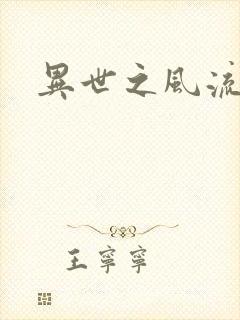 異世之風流
王寧寧